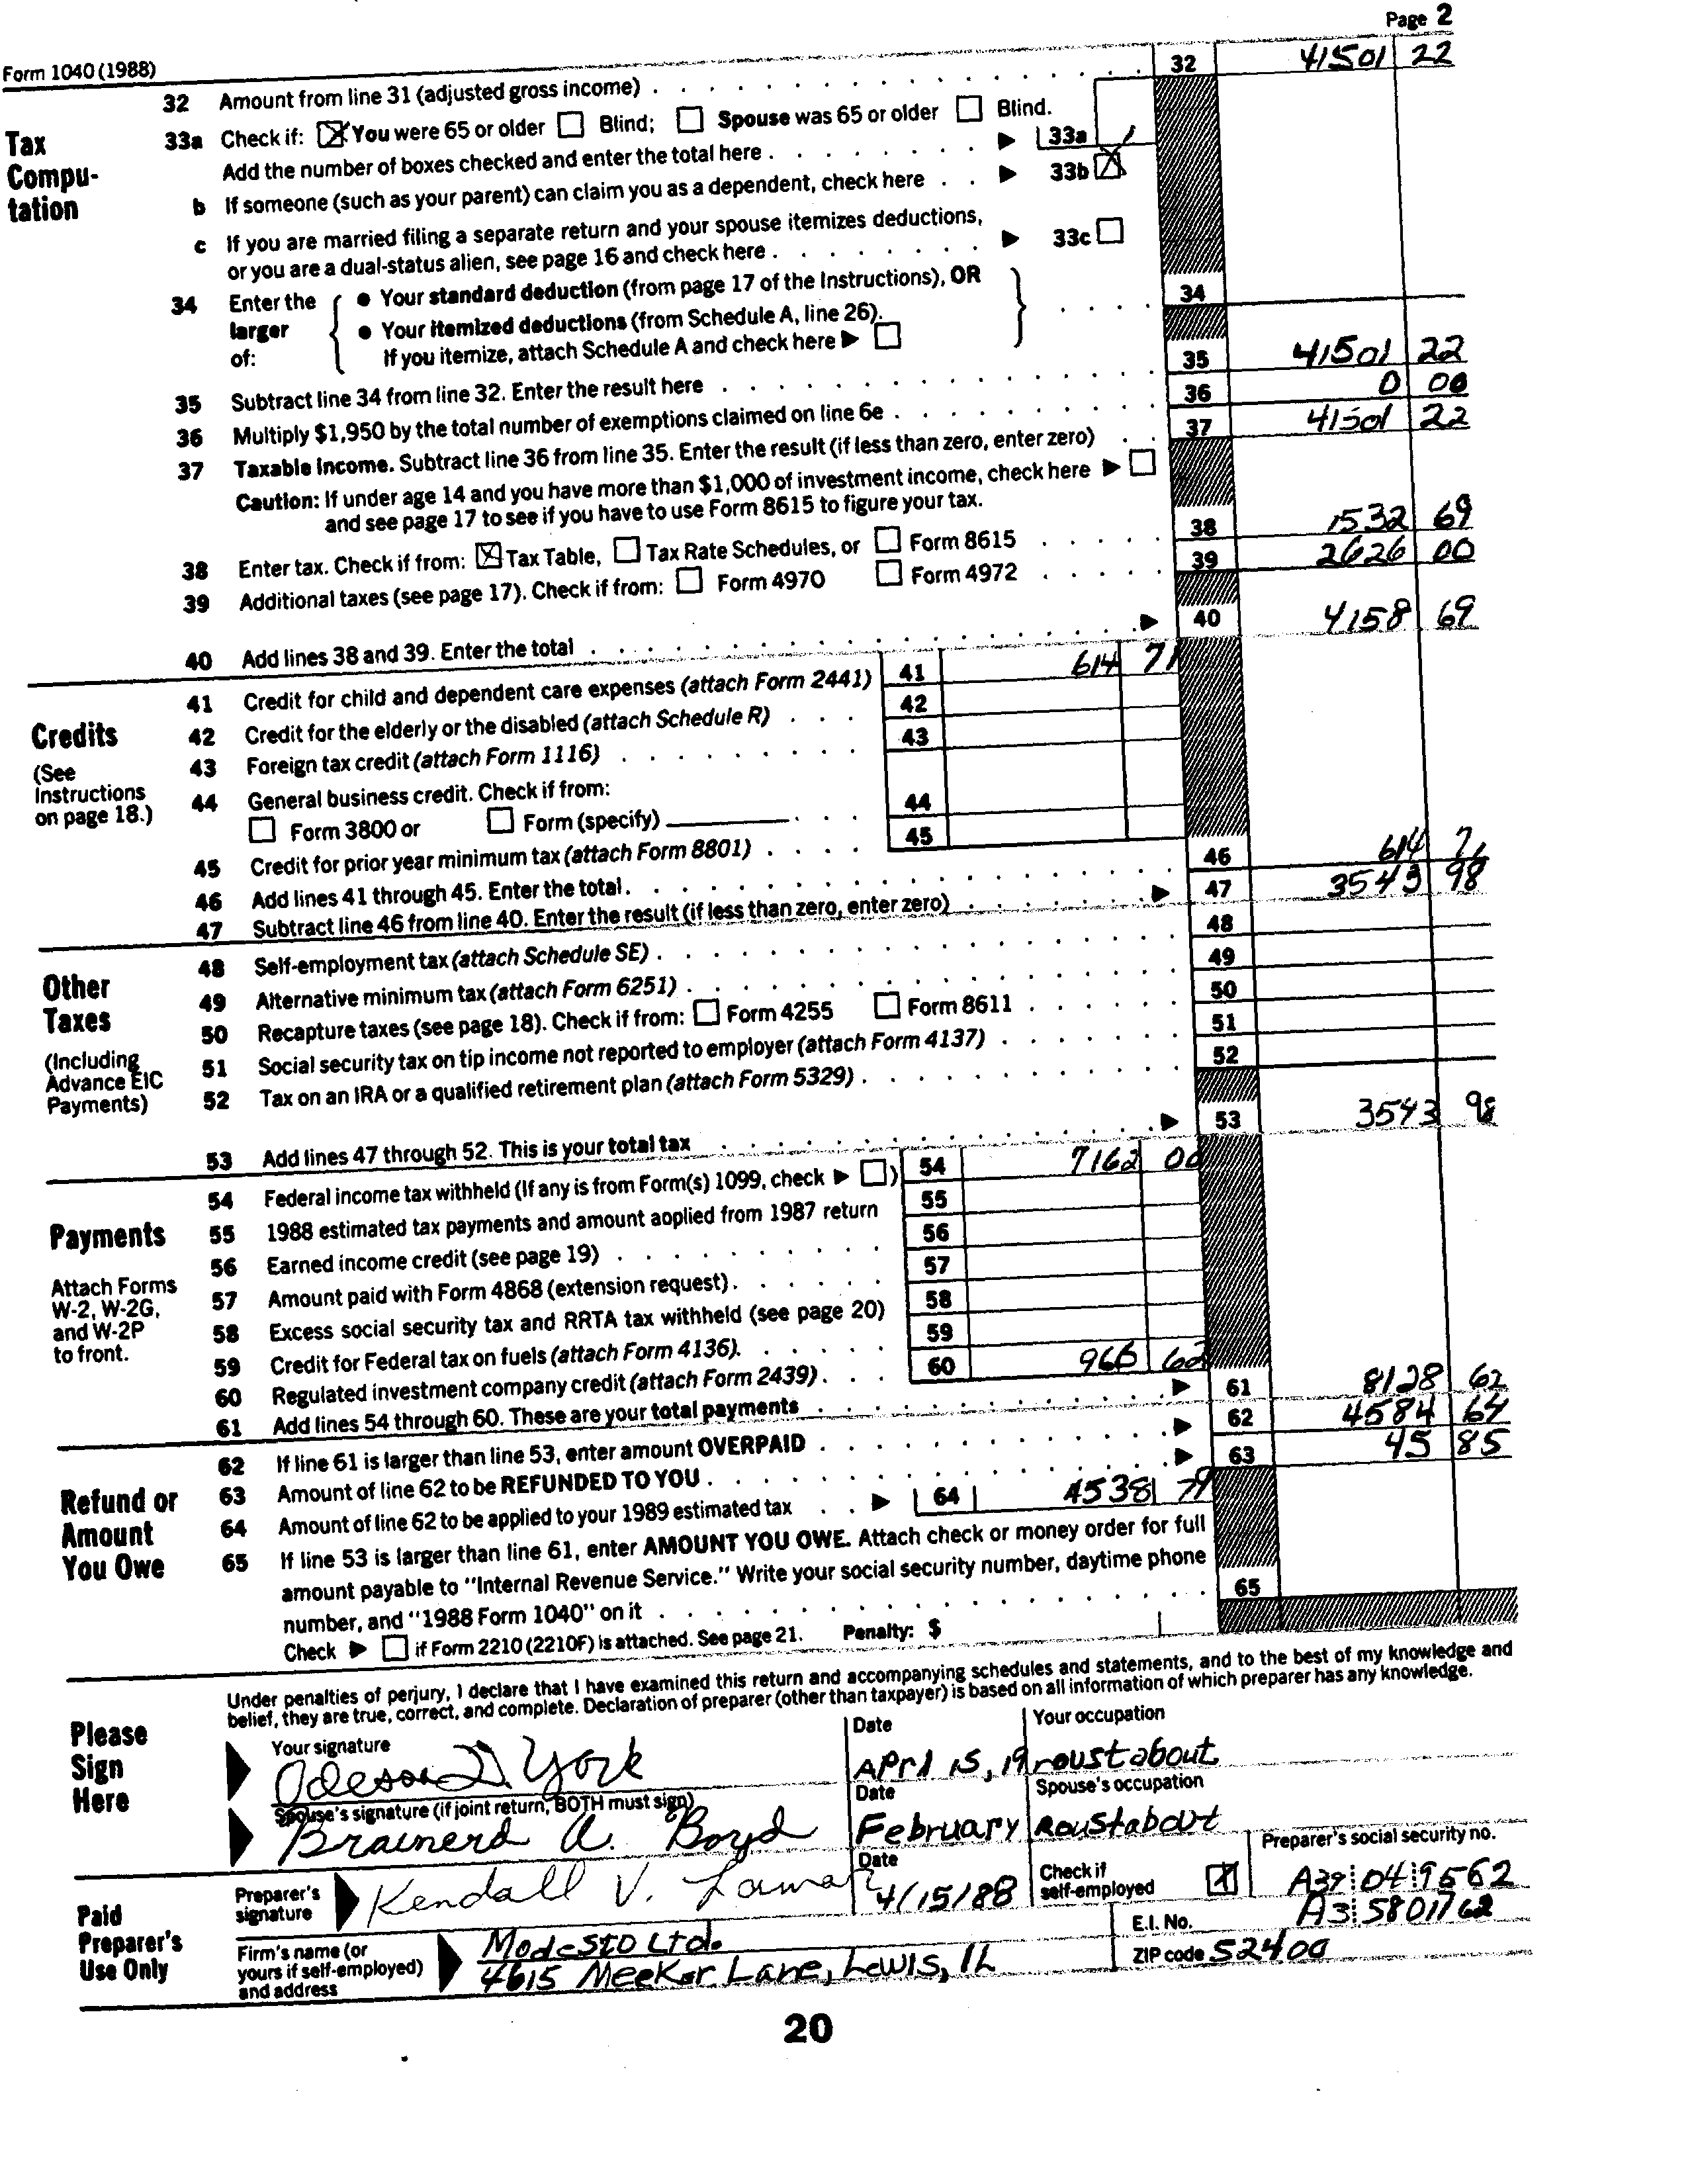 Page 2
Form 1040 (1988)
32 Amount from line 31 (adjusted gross income) 32 41501 22
Tax Compu-tation
33a Check if: [X] You were 65 or older [ ] Blind; [ ] Spouse was 65 or older [ ] Blind.
Add the number of boxes checked and enter the total here ▶ 33a 1
b If someone (such as your parent) can claim you as a dependent, check here ▶ 33b [X]
c If you are married filing a separate return and your spouse itemizes deductions,
or you are a dual-status alien, see page 16 and check here ▶ 33c [ ]
34 Enter the larger of: { ● Your standard deduction (from page 17 of the Instructions), OR
● Your itemized deductions (from Schedule A, line 26).
If you itemize, attach Schedule A and check here ▶ [ ] } 34
35 Subtract line 34 from line 32. Enter the result here 35 41501 22
36 Multiply $1,950 by the total number of exemptions claimed on line 6e 36 0 00
37 Taxable income. Subtract line 36 from line 35. Enter the result (if less than zero, enter zero) 37 41501 22
Caution: If under age 14 and you have more than $1,000 of investment income, check here ▶ [ ]
and see page 17 to see if you have to use Form 8615 to figure your tax.
38 Enter tax. Check if from: [X] Tax Table, [ ] Tax Rate Schedules, or [ ] Form 8615 38 1532 69
39 Additional taxes (see page 17). Check if from: [ ] Form 4970 [ ] Form 4972 39 2626 00
40 Add lines 38 and 39. Enter the total ▶ 40 4158 69
Credits
(See Instructions on page 18.)
41 Credit for child and dependent care expenses (attach Form 2441) 41 614 71
42 Credit for the elderly or the disabled (attach Schedule R) 42
43 Foreign tax credit (attach Form 1116) 43
44 General business credit. Check if from:
[ ] Form 3800 or [ ] Form (specify) 44
45 Credit for prior year minimum tax (attach Form 8801) 45
46 Add lines 41 through 45. Enter the total. 46 614 71
47 Subtract line 46 from line 40. Enter the result (if less than zero, enter zero) ▶ 47 3543 98
Other Taxes
(Including Advance EIC Payments)
48 Self-employment tax (attach Schedule SE) 48
49 Alternative minimum tax (attach Form 6251) 49
50 Recapture taxes (see page 18). Check if from: [ ] Form 4255 [ ] Form 8611 50
51 Social security tax on tip income not reported to employer (attach Form 4137) 51
52 Tax on an IRA or a qualified retirement plan (attach Form 5329) 52
53 Add lines 47 through 52. This is your total tax ▶ 53 3543 98
Payments
Attach Forms W-2, W-2G, and W-2P to front.
54 Federal income tax withheld (If any is from Form(s) 1099, check ▶ [ ]) 54 7162 00
55 1988 estimated tax payments and amount aoplied from 1987 return 55
56 Earned income credit (see page 19) 56
57 Amount paid with Form 4868 (extension request). 57
58 Excess social security tax and RRTA tax withheld (see page 20) 58
59 Credit for Federal tax on fuels (attach Form 4136). 59
60 Regulated investment company credit (attach Form 2439) 60 966 62
61 Add lines 54 through 60. These are your total payments ▶ 61 8128 62
Refund or Amount You Owe
62 If line 61 is larger than line 53, enter amount OVERPAID ▶ 62 4584 64
63 Amount of line 62 to be REFUNDED TO YOU ▶ 63 45 85
64 Amount of line 62 to be applied to your 1989 estimated tax ▶ 64 4538 79
65 If line 53 is larger than line 61, enter AMOUNT YOU OWE. Attach check or money order for full
amount payable to "Internal Revenue Service." Write your social security number, daytime phone
number, and "1988 Form 1040" on it 65
Check ▶ [ ] if Form 2210 (2210F) is attached. See page 21. Penalty: $
Please Sign Here
Under penalties of perjury, I declare that I have examined this return and accompanying schedules and statements, and to the best of my knowledge and
belief, they are true, correct, and complete. Declaration of preparer (other than taxpayer) is based on all information of which preparer has any knowledge.
Your signature Date Your occupation
Odessa D. York April 15, 19 roustabout
Spouse's signature (if joint return, BOTH must sign) Date Spouse's occupation
Brainerd A. Boyd February Roustabout
Paid Preparer's Use Only
Preparer's signature Kendall V. Lamar Date 4/15/88 Check if self-employed [X] Preparer's social security no. A39 04 9562
Firm's name (or yours if self-employed) and address Modesto Ltd. E.I. No. A3 5801762
4615 Meeker Lane, Lewis, IL ZIP code 52400
20